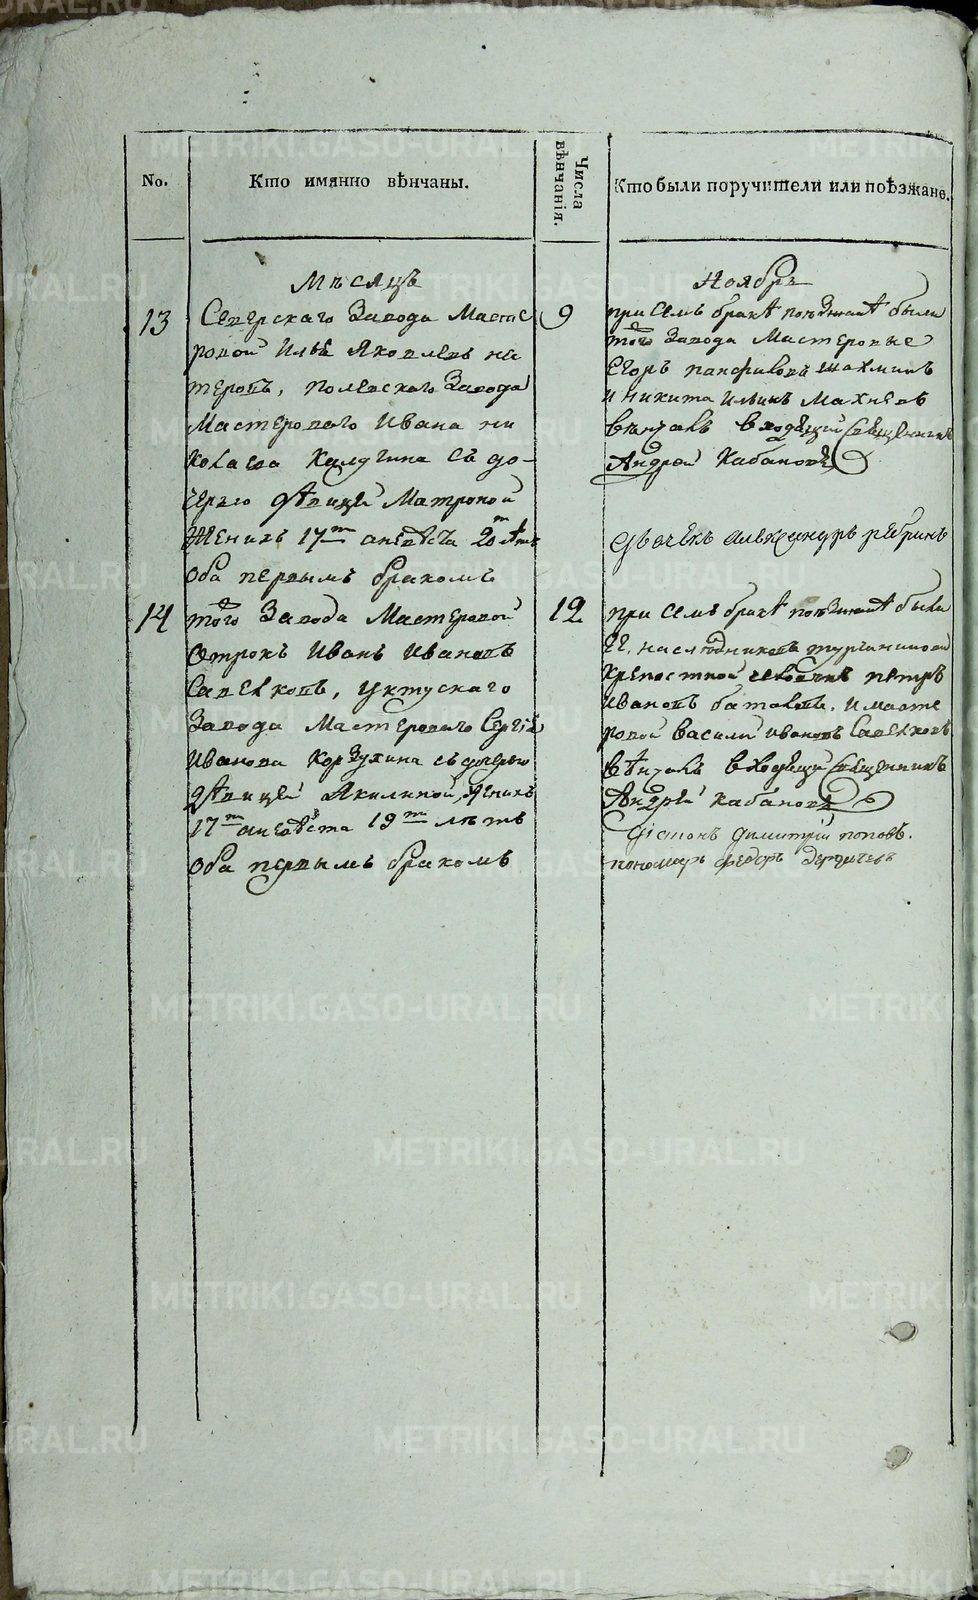 No.
Кто имянно вѣнчаны.
Числа вѣнчанія.
Кто были поручители или поѣзжане.
Мѣсяцъ
Ноябрь
13
Северскаго Завода Масте
ровой Илья Яковлевъ не
теровъ, полевскаго Завода
Мастероваго Ивана ни
колаева Калугина съ до-
черью дѣвицей Матроной
Жених 17 а невѣста 20 лѣтъ
Оба первымъ бракомъ
9
при семъ бракѣ поѣзжанѣ были
того Завода Мастеровые
Егоръ панфиловъ
и никита Ильинъ Махневъ
вѣнчалъ входящий священникъ
Андрей Кабановъ
Дьячекъ александръ
14
того Завода Мастеровой
Отрокъ Иванъ Ивановъ
Савелковъ, уктускаго
Завода Мастероваго Сергія
Иванова Корзухина съ дочерью
дѣвицей Акилиной, жених
17 а невѣста 19 лѣтъ
Оба первымъ бракомъ
12
при семъ бракѣ поѣзжанѣ были
Гг. наслѣдниковъ турчаниновой
крепостной петръ
Ивановъ батовъ. и масте
ровой василий ивановъ Савелковъ
вѣнчалъ входящий священникъ
Андрей кабановъ
Діаконъ Димитрій поповъ.
пономарь федоръ
METRIKI.GASO-URAL.RU